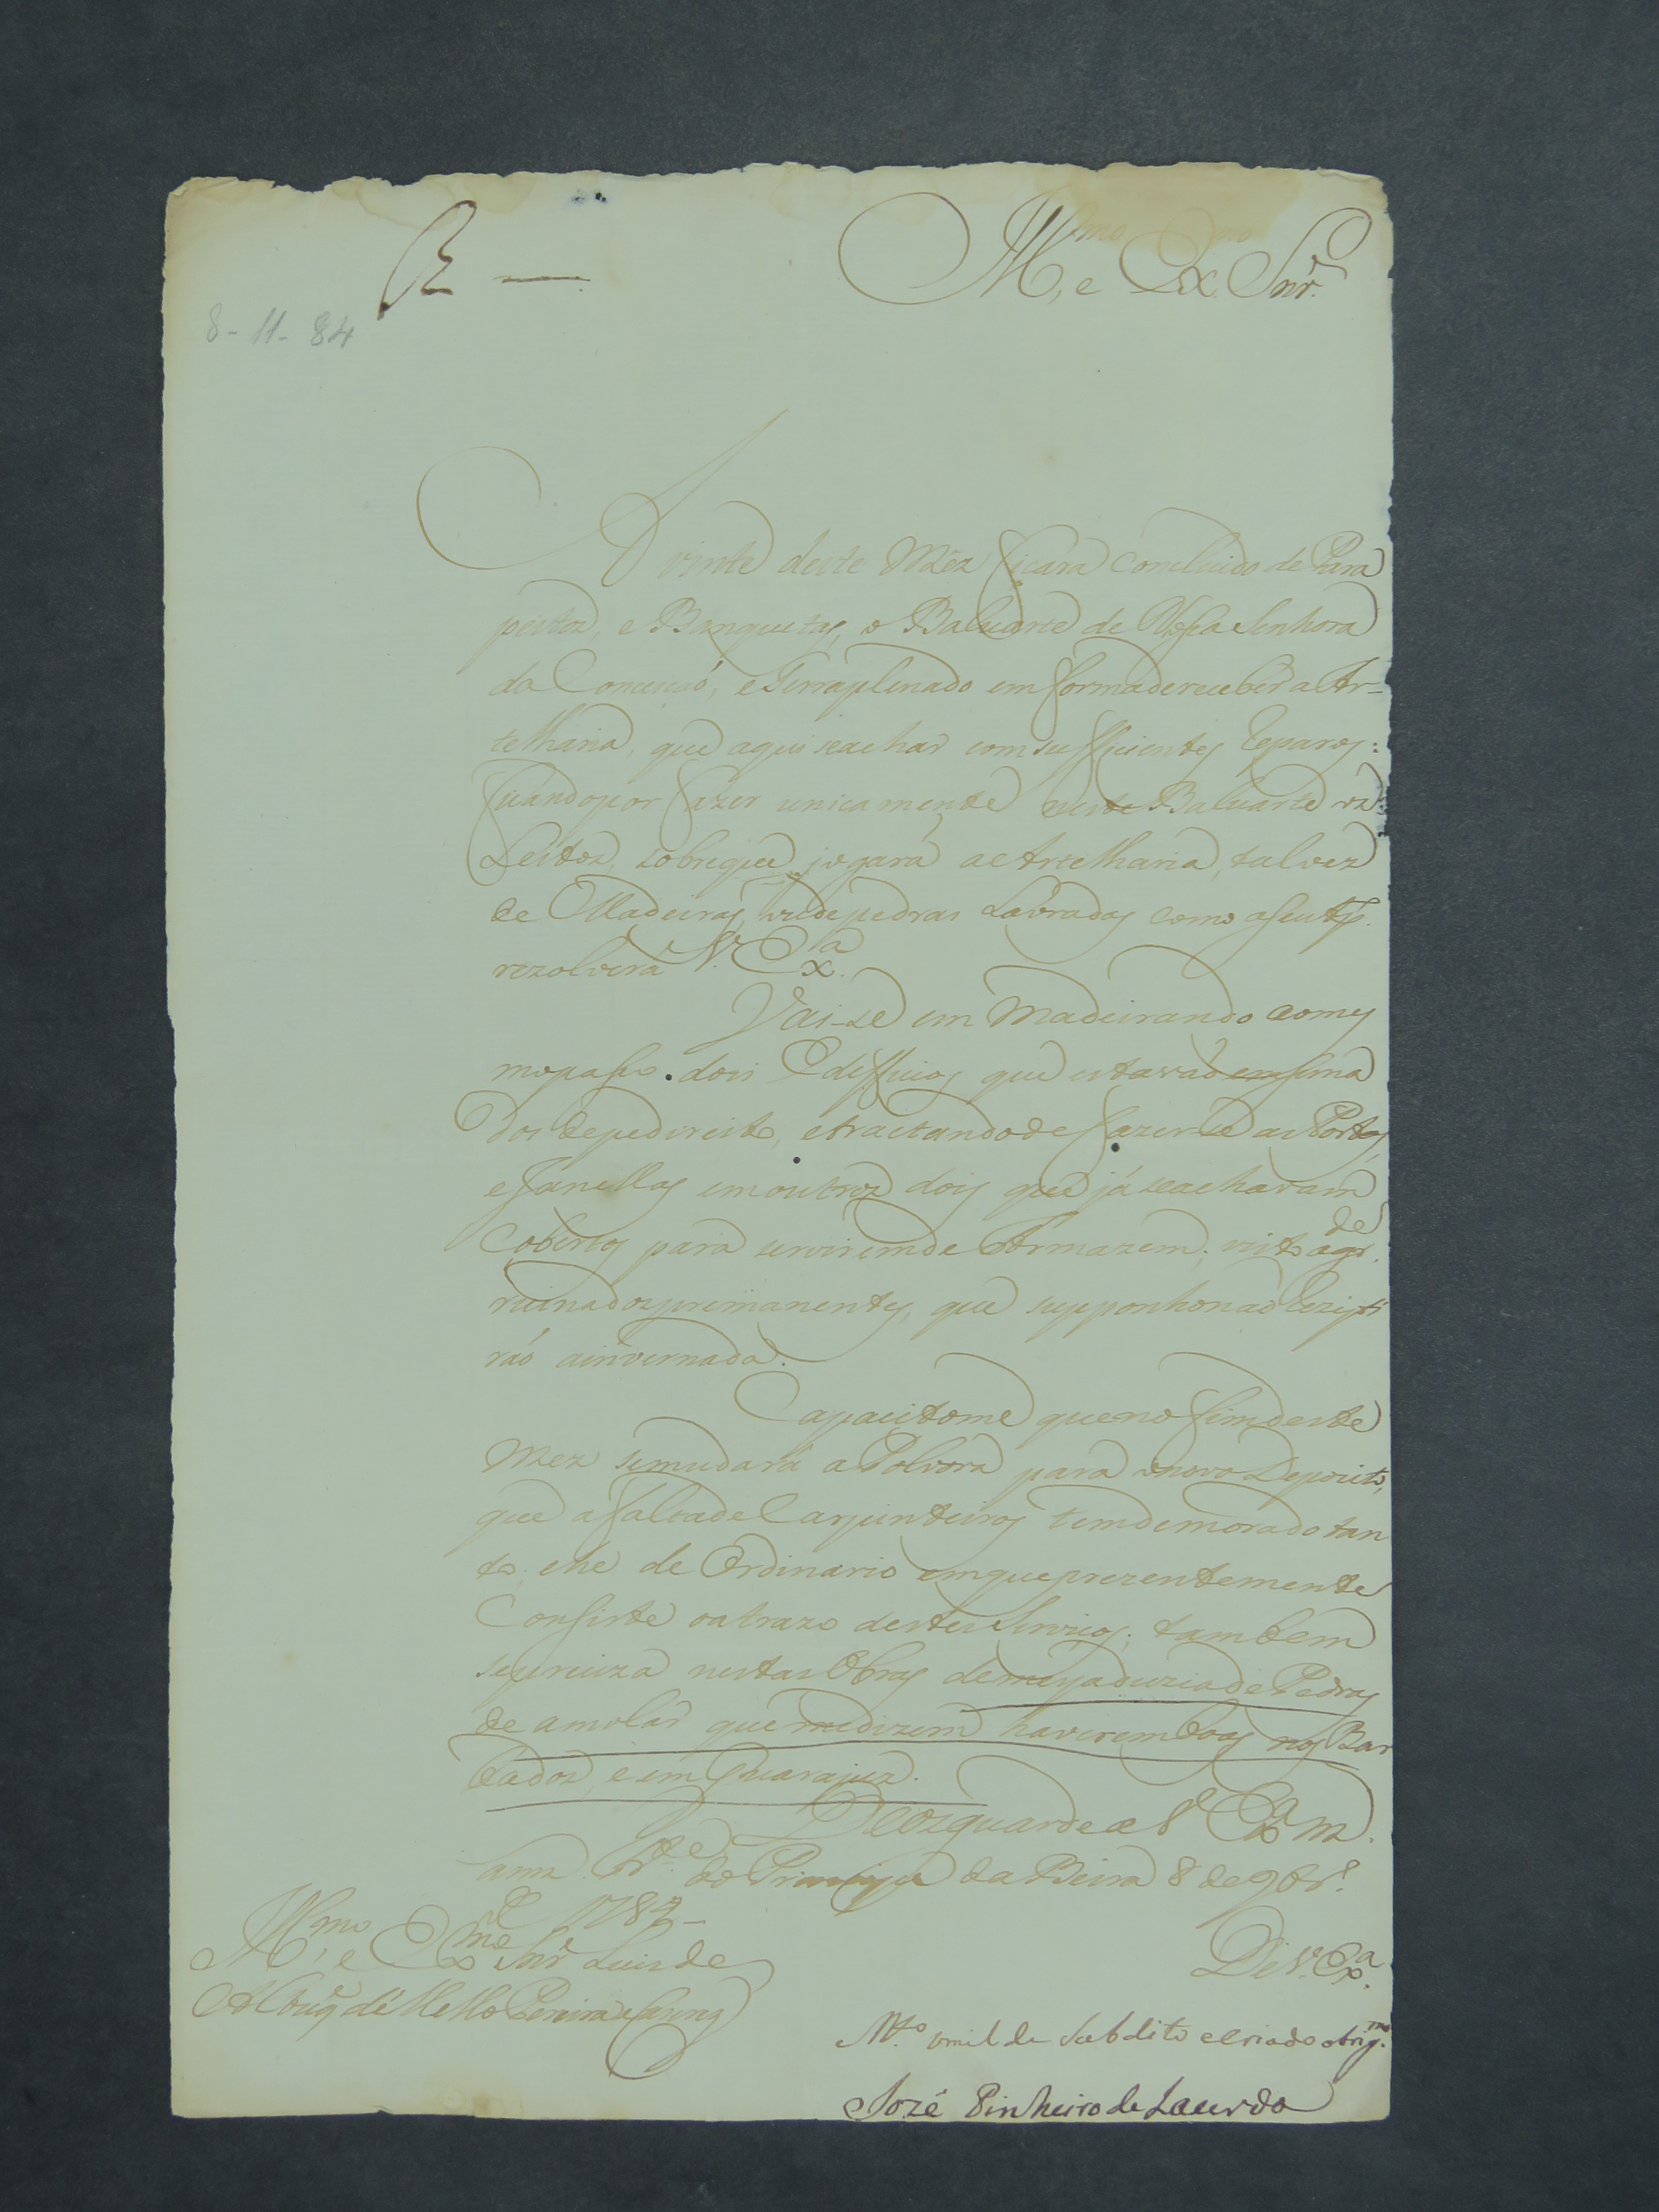 R —
Ill.mo, e Ex.mo Snr.
8-11-84
A vinte deste Mêz ficará concluido de Para
peitos, e Banquetas, o Baluarte de Nossa Senhora
da Conceiçaó, e Terraplenado em forma de receber a Ar-
telharia, que aqui se achar com sufficientes Reparos:
ficando por fazer unicamente neste Baluarte os
Leitos, sobre que jogará a Artelharia, talvez
de Madeiras, ou de pedras Lavradas como a seu tp.
rezolverá V. Ex.a
Vai-se em Madeirando com o mes
mo passo dois Edifficios que estavaõ em sima
dos de pedireito, e tractando de fazer se as Portas,
e Janellas em outros dois que já se achavam
Cobertos para servirem de Armazem; visto a gr.de
ruina dos premanentes, que supponho naõ Rezisti
ráõ a invernada.
Capacito me que no fim deste
Mez se mudará a Polvora para o novo Depozito,
que a falta de Carpinteiros tem demorado tan
to; e he de Ordinario em que prezentemente
Consiste o atrazo destes Serviços; tambem
se preciza nestas Obras de meya duzia de Pedras
de amolar que me dizem haverem boas nos Bar
bados, e em Guarajus.
Deos guarde a V. Ex.a m.
ann. Fr.te do Principe da Beira 8 de 9br.o
de 1784-
Ill.mo, e Ex.mo Snr. Luis de
Albuq.e de Mello Pereira e Caceres
De V. Ex.a
M.to omilde Subdito e criado obrig.mo
Jozé Pinheiro de Lacerda